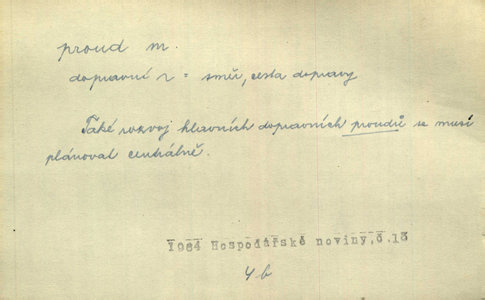 proud m.
dopravní r = směr, cesta dopravy
Také rozvoj hlavních dopravních proudů se musí
plánovat centrálně.
1964 Hospodářské noviny, č. 13
4 b